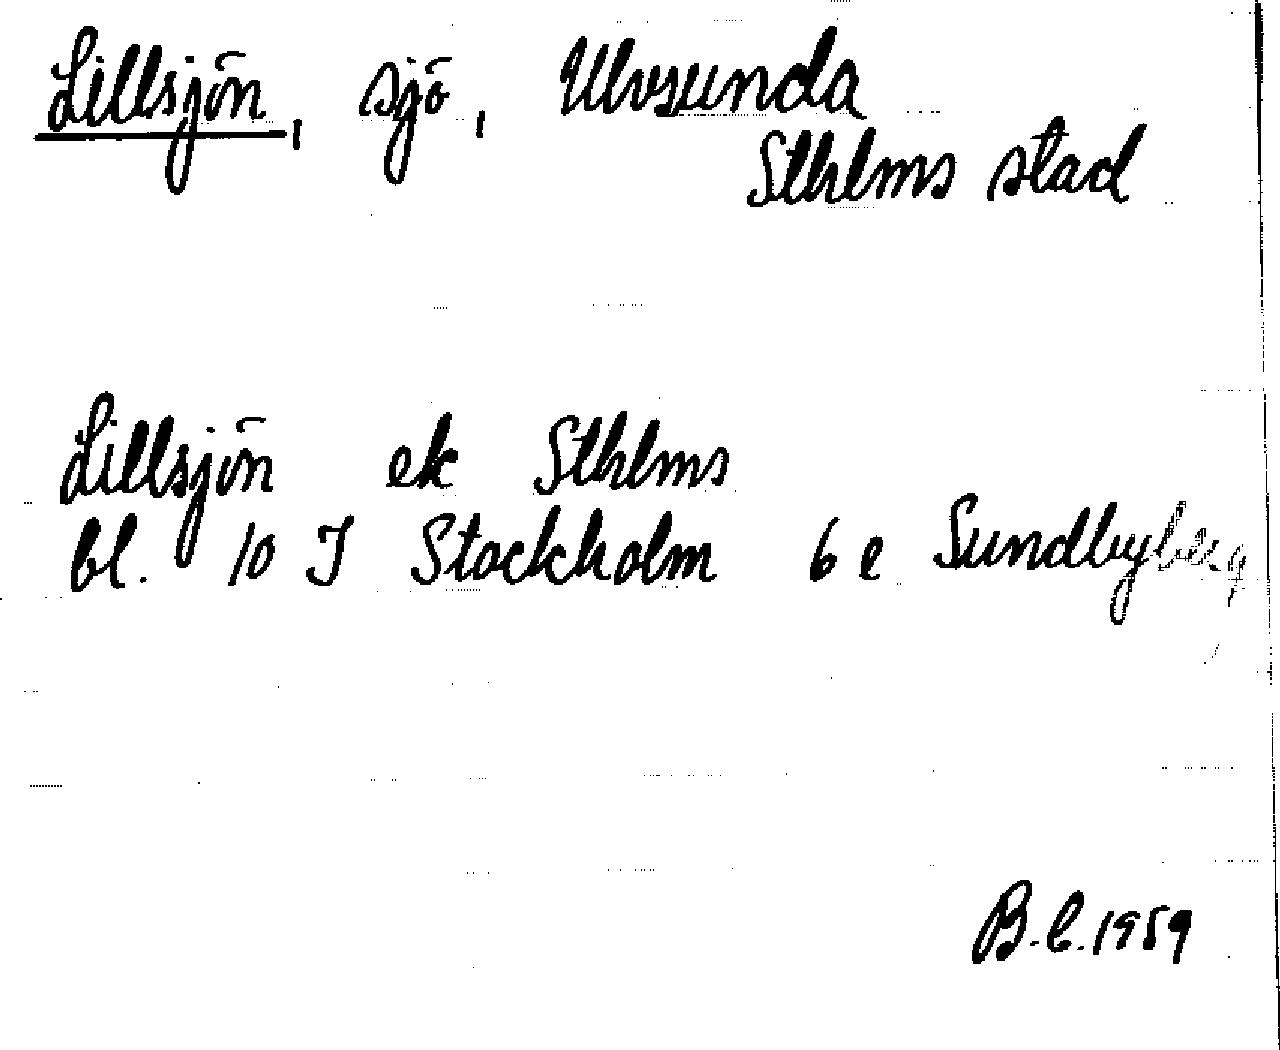 Lillsjön, sjö, Ulvsunda
Sthlms stad
Lillsjön ek Sthlms
bl. 10 I Stockholm 6 e Sundbyberg
B.C. 1959